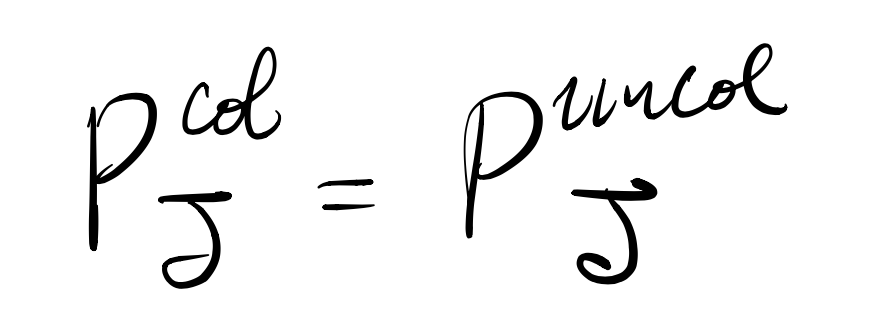 P_J^{col} = P_J^{uncol}